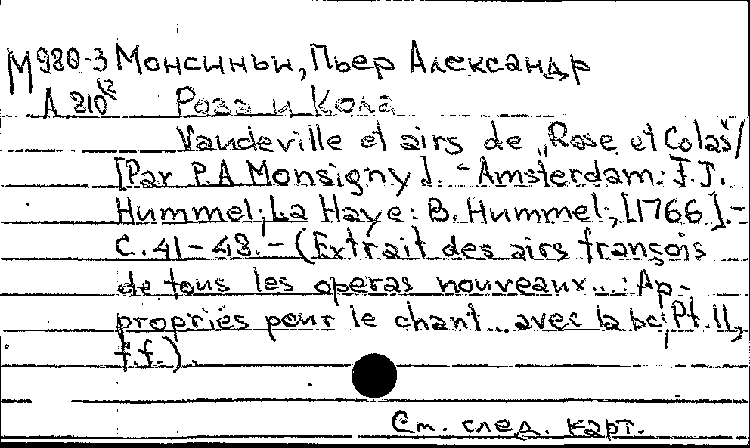 М980-3 Монсиньи, Пьер Александр
А 210¹² Роза и Кола
Vaudeville et airs de „Rose et Colas“/
[Par P.A Monsigny]. - Amsterdam: J.J.
Hummel; La Haye: B. Hummel, [1766].-
С. 41-48. - (Extrait des airs françois
de tous les operas nouveaux...: Ap-
propriés pour le chant... avec la bc; Pt. 11,
f.f.).
См. след. карт.